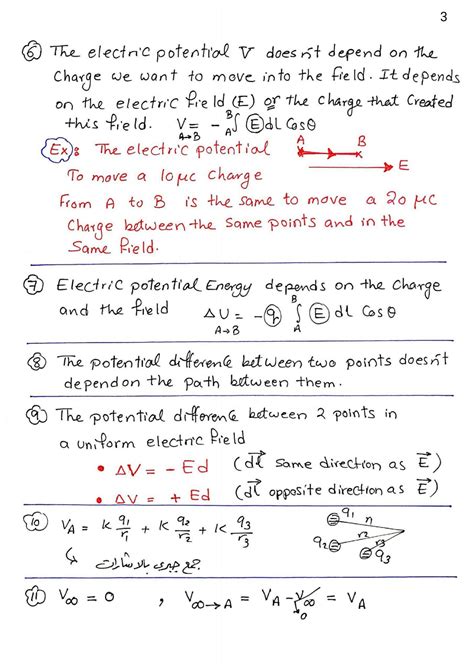 3
⑥ The electric potential V doesn't depend on the
Charge we want to move into the field. It depends
on the electric field (E) or the Charge that Created
this field. V A→B = - ∫ A B E dl Cosθ
Ex: The electric potential
A B
E
To move a 10 μc Charge
From A to B is the same to move a 20 μC
Charge between the same points and in the
Same field.
⑦ Electric potential Energy depends on the Charge
and the field ΔU A→B = - q ∫ A B E dl Cosθ
⑧ The potential difference between two points doesn't
depend on the path between them.
⑨ The potential difference between 2 points in
a uniform electric field
• ΔV = - Ed (dl Same direction as E)
• ΔV = + Ed (dl opposite direction as E)
⑩ V_A = K q1/r1 + K q2/r2 + K q3/r3
جمع جبري بالاشارات
q1 r1
q2 r2
q3
⑪ V∞ = 0 , V∞→A = V_A - V∞ = V_A
0